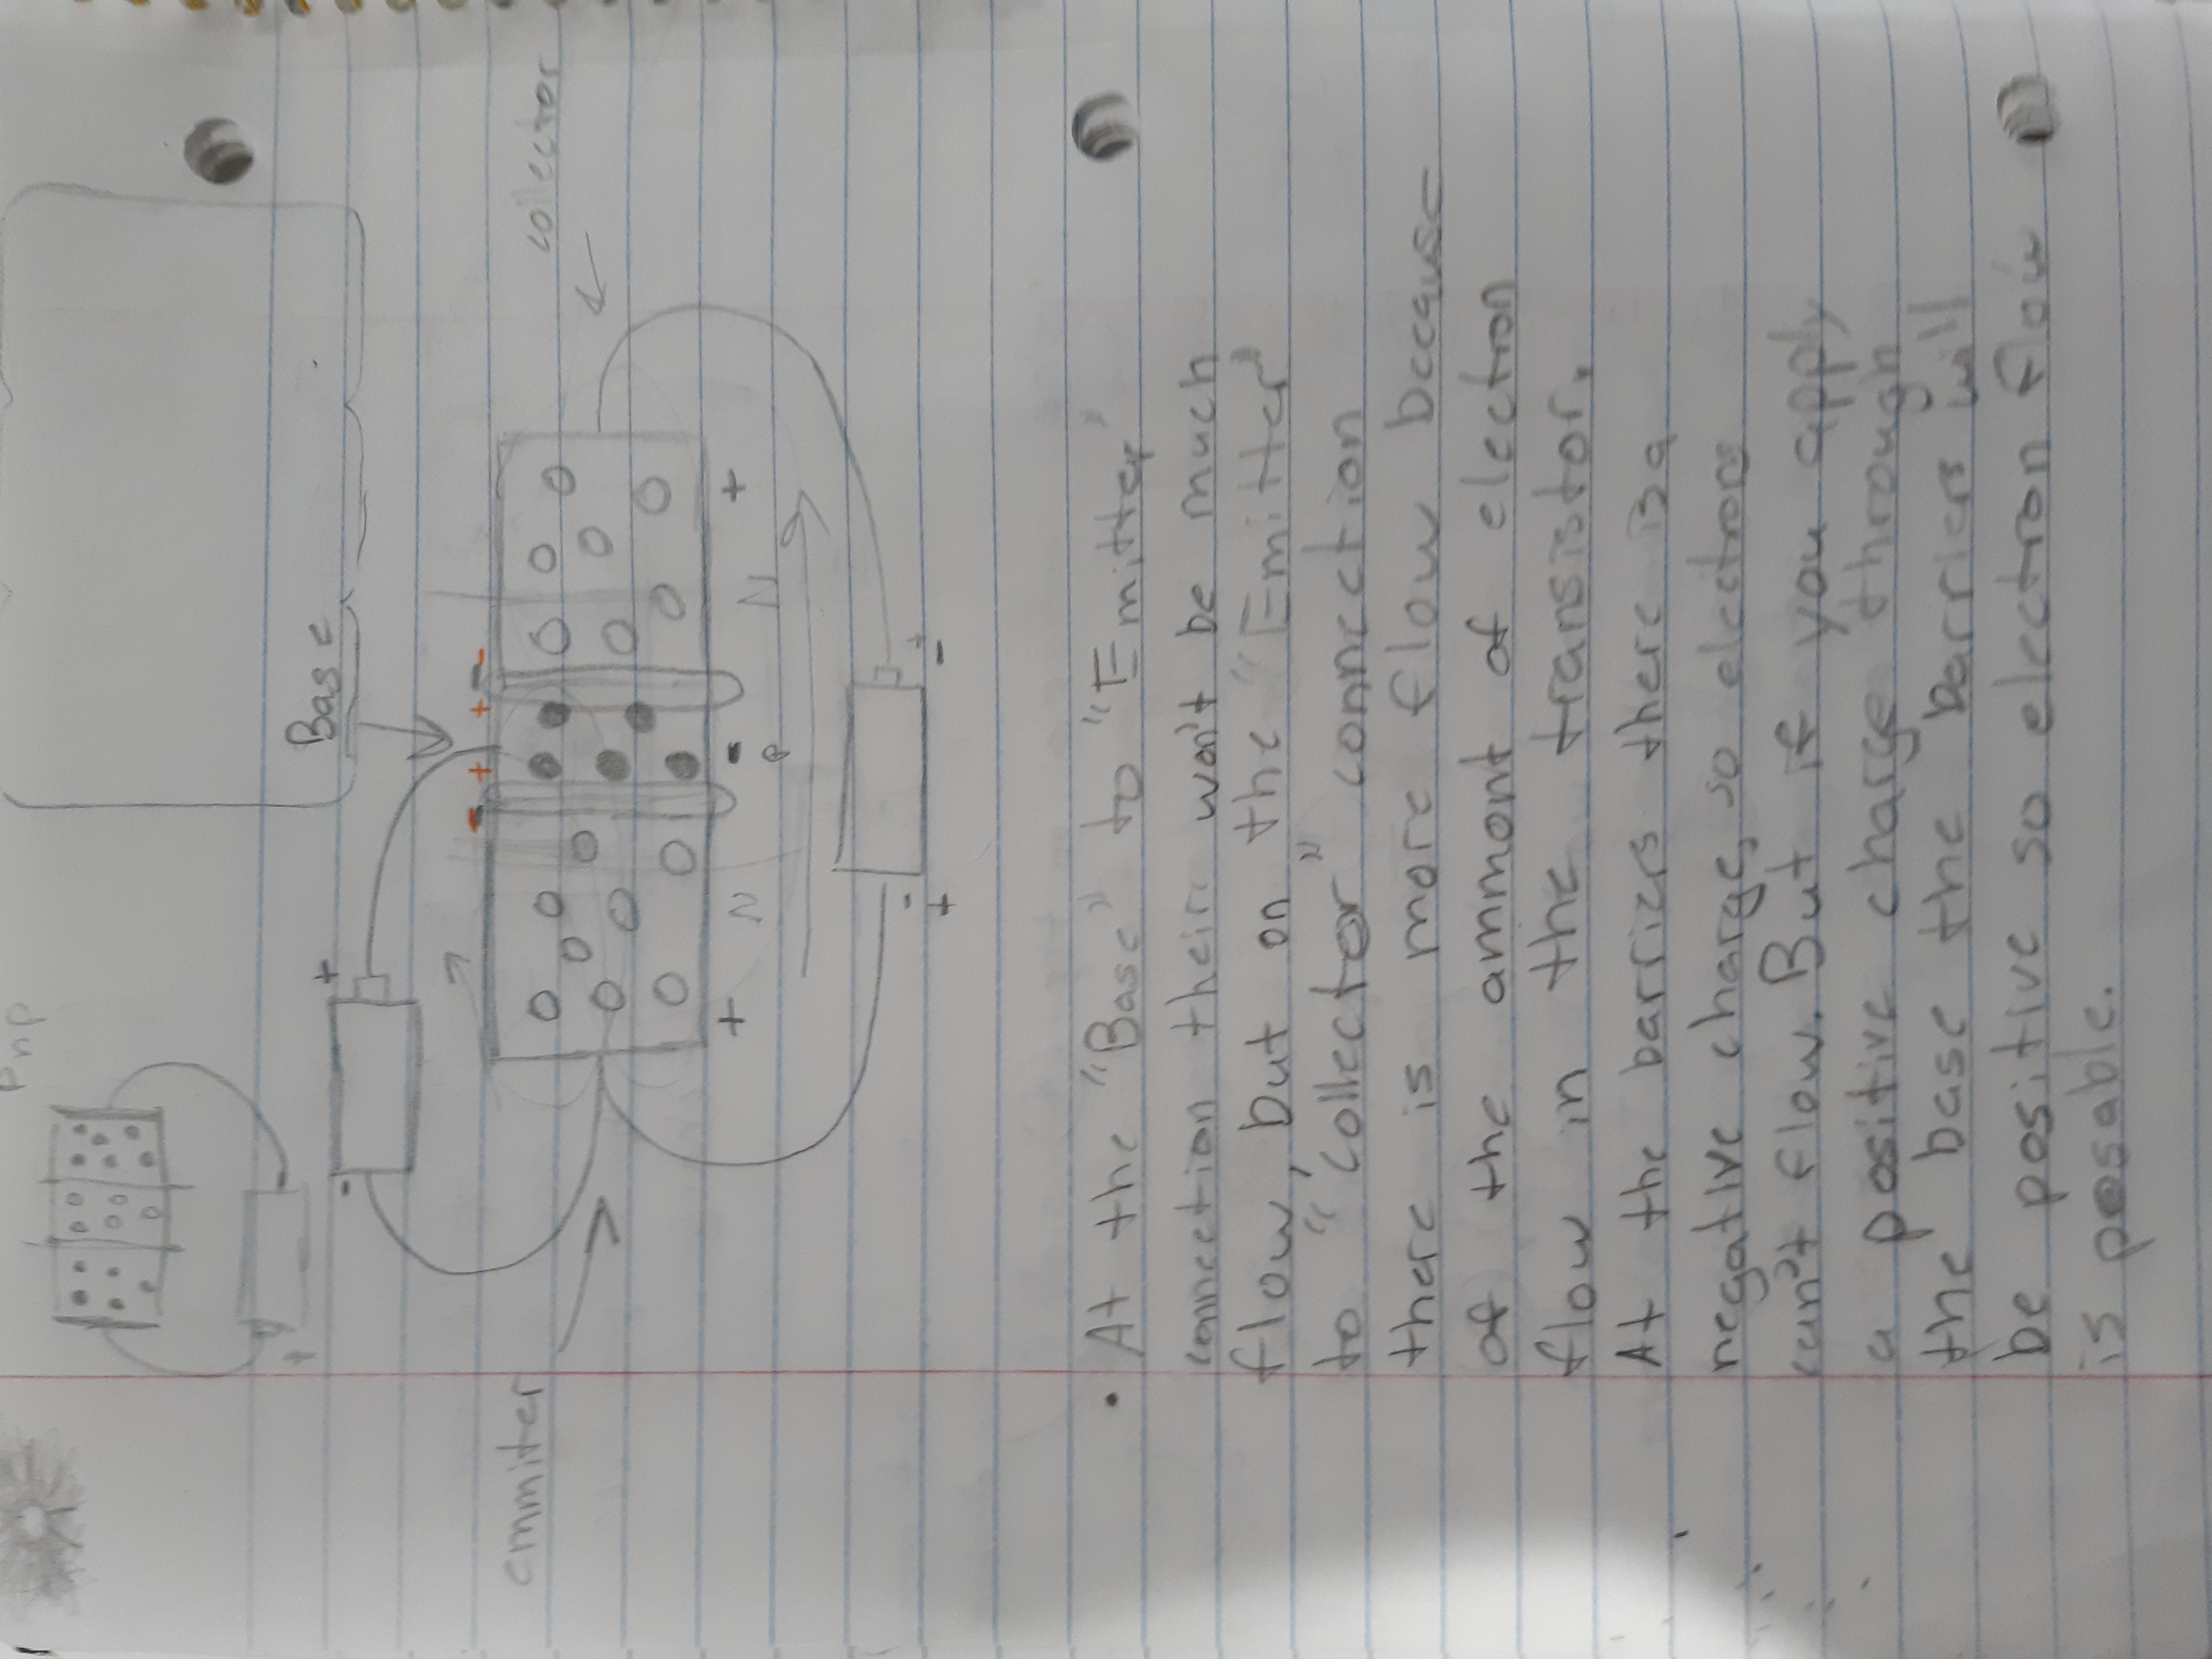 Pnp
+ -
- +
Base
- + + -
emmiter
collector
+ N - N +
P
- +
+ -
• At the "Base" to "Emitter"
connection their won't be much
flow, but on the "Emitter"
to "collector" connection
there is more flow because
of the ammont of electron
flow in the transistor.
At the barriers there is a
negative charge, so electrons
can't flow. But if you apply
a positive charge through
the base the barriers will
be positive so electron flow
is posable.